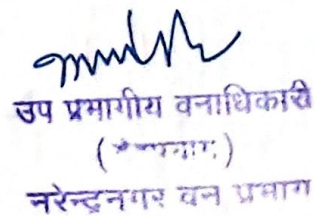 उप प्रभागीय वनाधिकारी
नरेन्द्रनगर वन प्रभाग